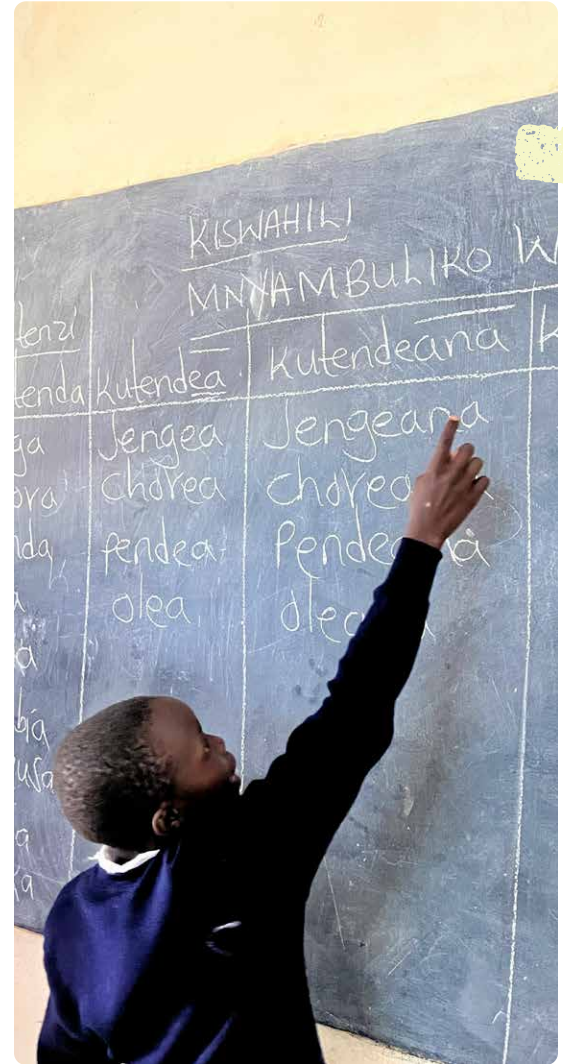 KISWAHILI
MNYAMBULIKO W
tenzi
tenda kutendea kutendeana K
ga Jengea Jengeana
ora chorea
nda pendea
olea
a
bia
usa
a
ka